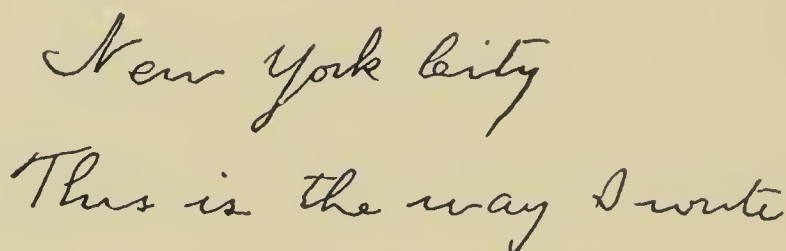 New York City
This is the way I write